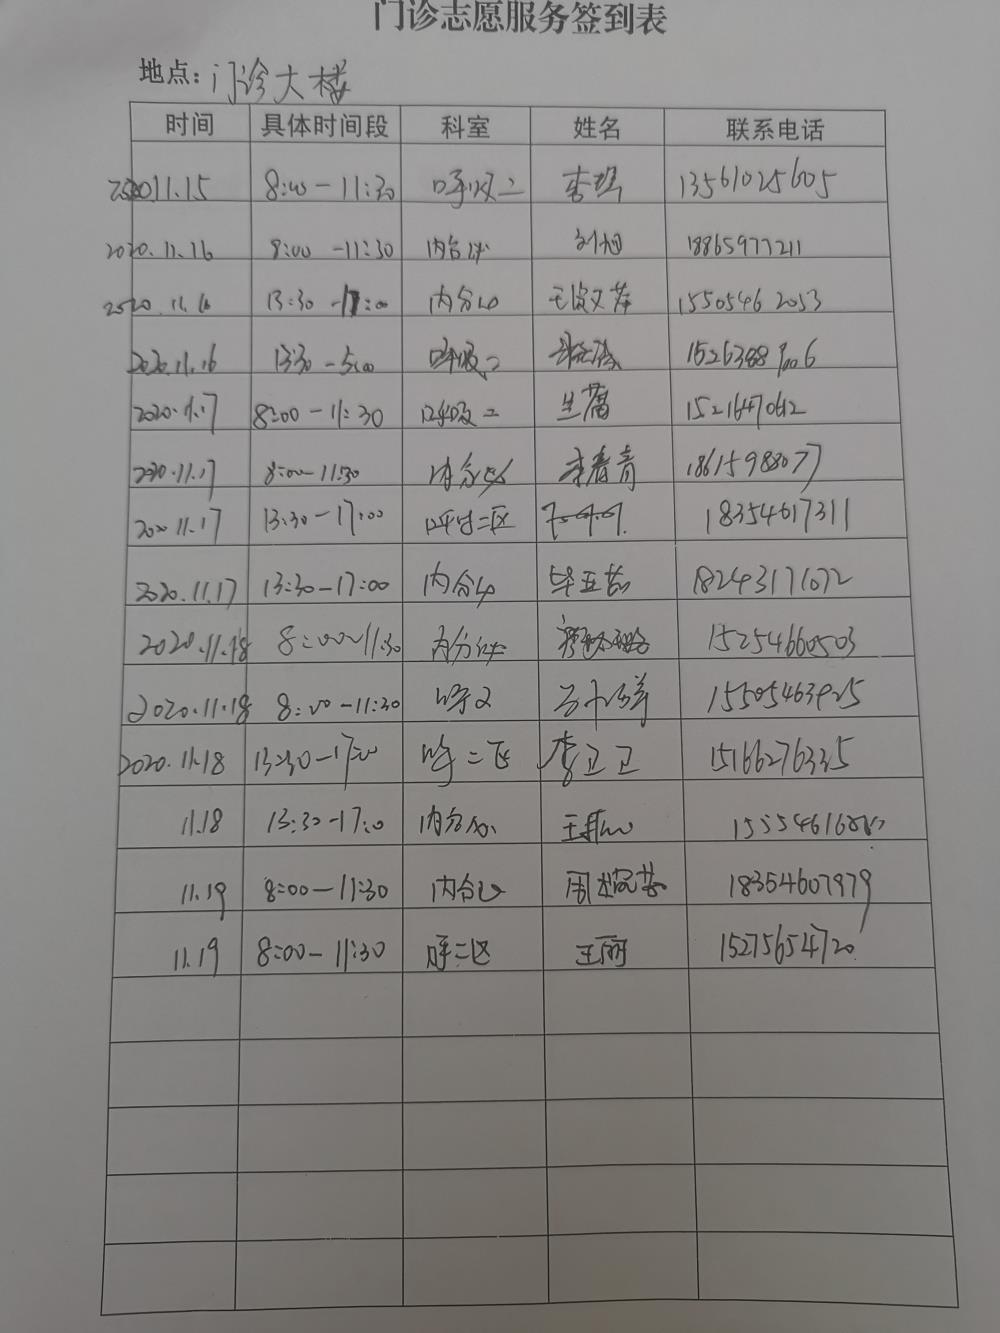 门诊志愿服务签到表
地点：门诊大楼
时间 具体时间段 科室 姓名 联系电话
2020.11.15 8:00-11:30 呼吸二 李 13561025605
2020.11.16 8:00-11:30 内分泌 刘旭 18865977211
2020.11.16 13:30-17:00 内分泌 15505462053
2020.11.16 13:30-5:00 呼吸二
2020.11.17 8:00-11:30 呼吸二 生腐 1521647062
2020.11.17 8:00-11:30 内分泌 李春青 18615988077
2020 11.17 13:30-17:00 二区 18354617311
2020.11.17 13:30-17:00 内分泌 毕亚茹 18243171072
2020.11.18 8:00~11:30 内分泌 15254660503
2020.11.18 8:00-11:30 呼 15505463925
2020.11.18 13:30-17:00 呼二区 李卫卫 15166276335
11.18 13:30-17:0 内分泌 王
11.19 8:00-11:30 内分泌 周 18354607979
11.19 8:00-11:30 呼二区 王丽 15275654720